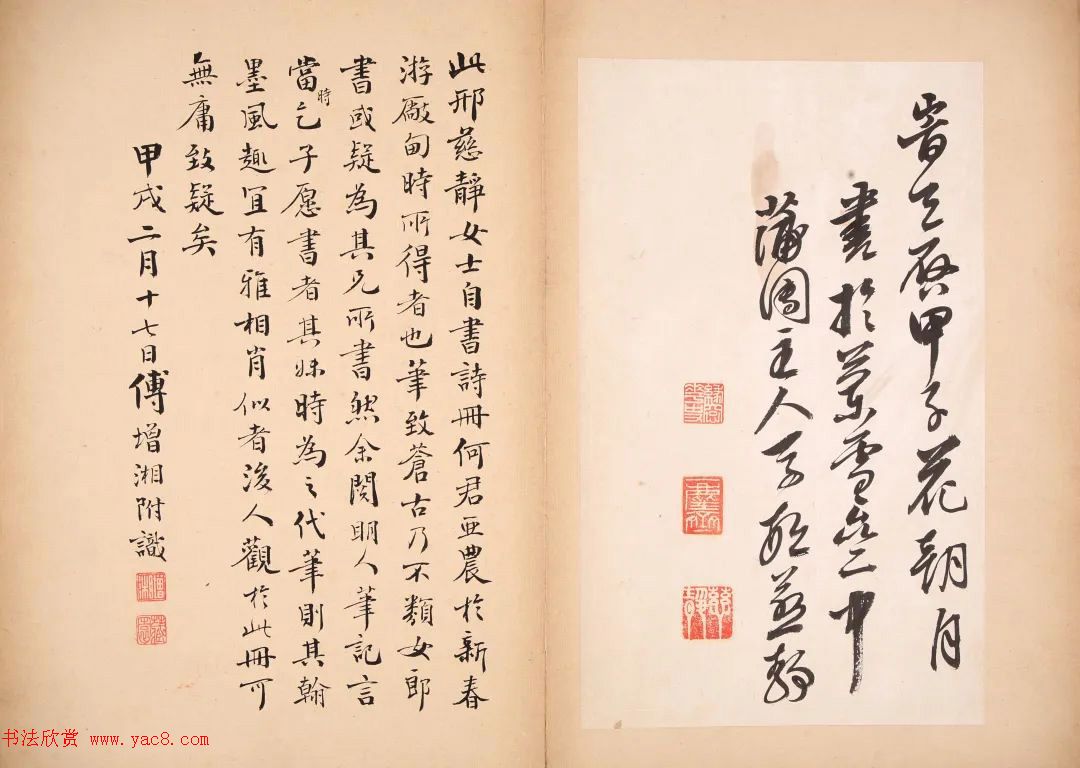 旹天啓甲子花朝月
書於蘭雪齋中
蒲團主人子愿慈靜
此邢慈靜女士自書詩冊何君亞農於新春
游廠甸時所得者也筆致蒼古乃不類女郎
書或疑為其兄所書然余閱明人筆記言
當時乞子愿書者其妹時為之代筆則其翰
墨風趣宜有雅相肖似者後人觀於此冊可
無庸致疑矣
甲戌二月十七日傅增湘附識
书法欣赏 www.yac8.com